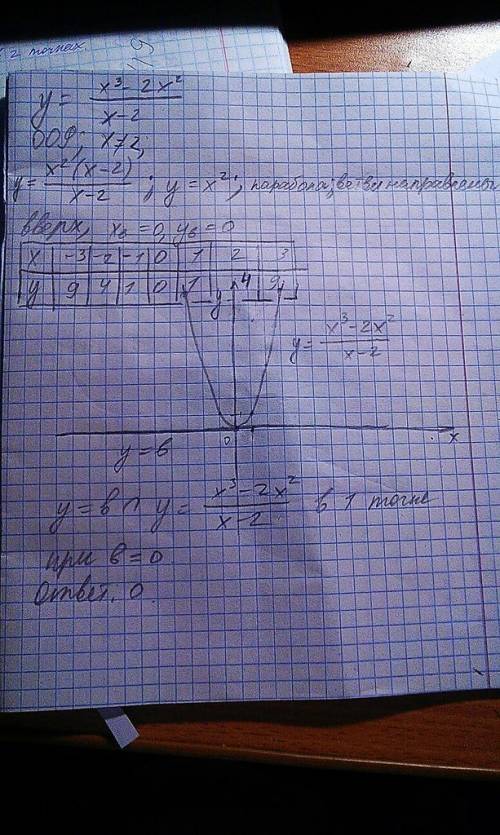 2 точках.
y = x³ - 2x² / x - 2
ООФ; x≠2;
y = x²(x-2) / x-2 ; y = x²; парабола; ветви направлены
вверх, xв = 0, yв = 0
x -3 -2 -1 0 1 2 3
y 9 4 1 0 1 4 9
y
y = x³ - 2x² / x - 2
0 x
y = в
y = в ∩ y = x³ - 2x² / x - 2 в 1 точке
при в = 0
Ответ. 0.